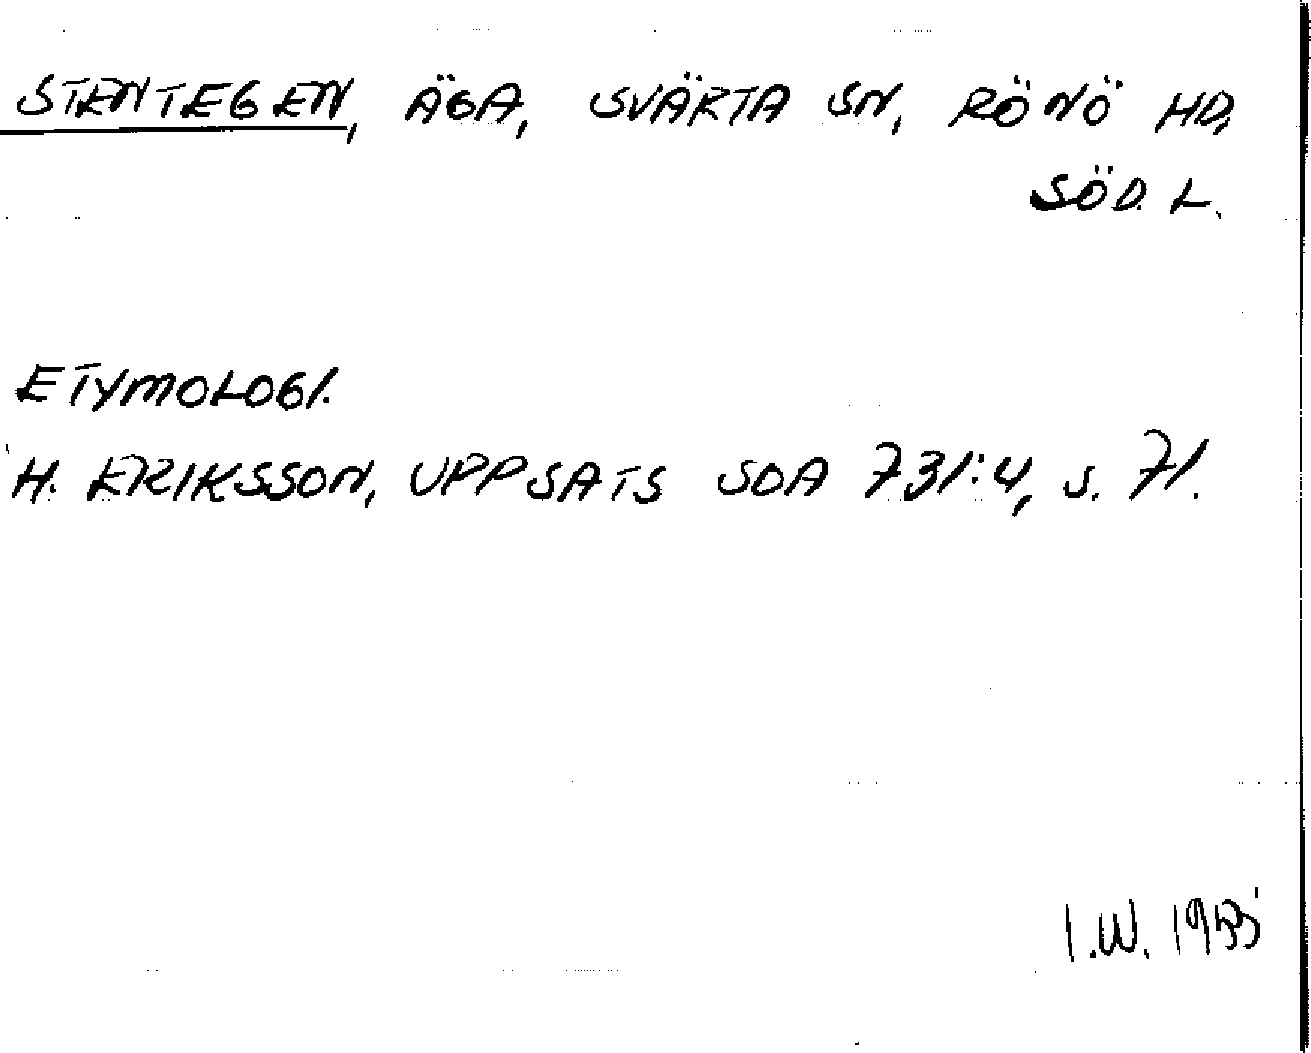 STENTEGEN, ÄGA, SVÄRTA SN, RÖNÖ HD,
SÖD. L.
ETYMOLOGI.
H. ERIKSSON, UPPSATS SOA 731:4, s. 71.
I.W. 1955